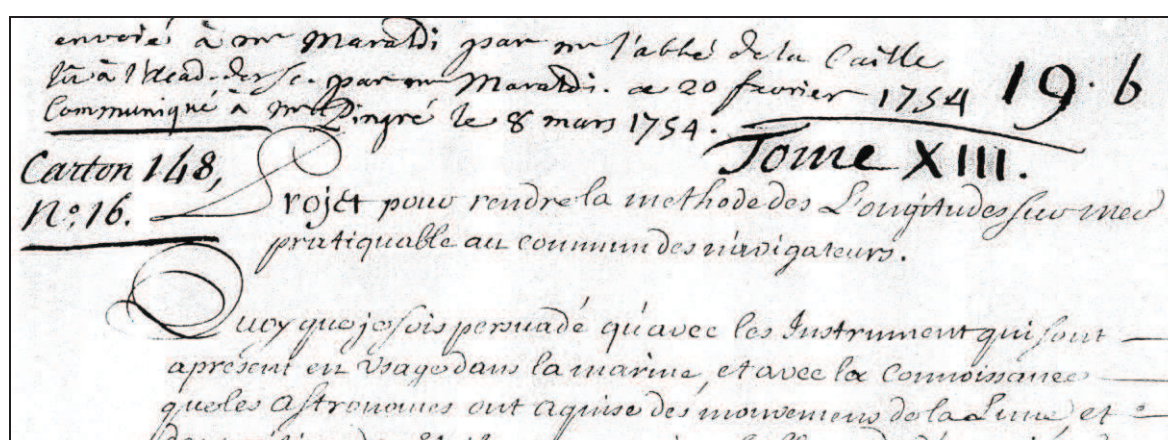 envoié à mr Maraldi par mr l'abbé de la Caille
lû à l'Acad. des Sc. par mr Maraldi. ce 20 fevrier 1754
Communiqué à mr Pingré le 8 mars 1754.
19. b
Tome XIII.
Carton 148,
No. 16.
Projet pour rendre la methode des Longitudes sur mer
pratiquable au commun des navigateurs.
Quoy que je sois persuadé qu'avec les Instrument qui sont
apresent en usage dans la marine, et avec la Connoissance
que les Astronomes ont aquise des mouvemens de la Lune, et